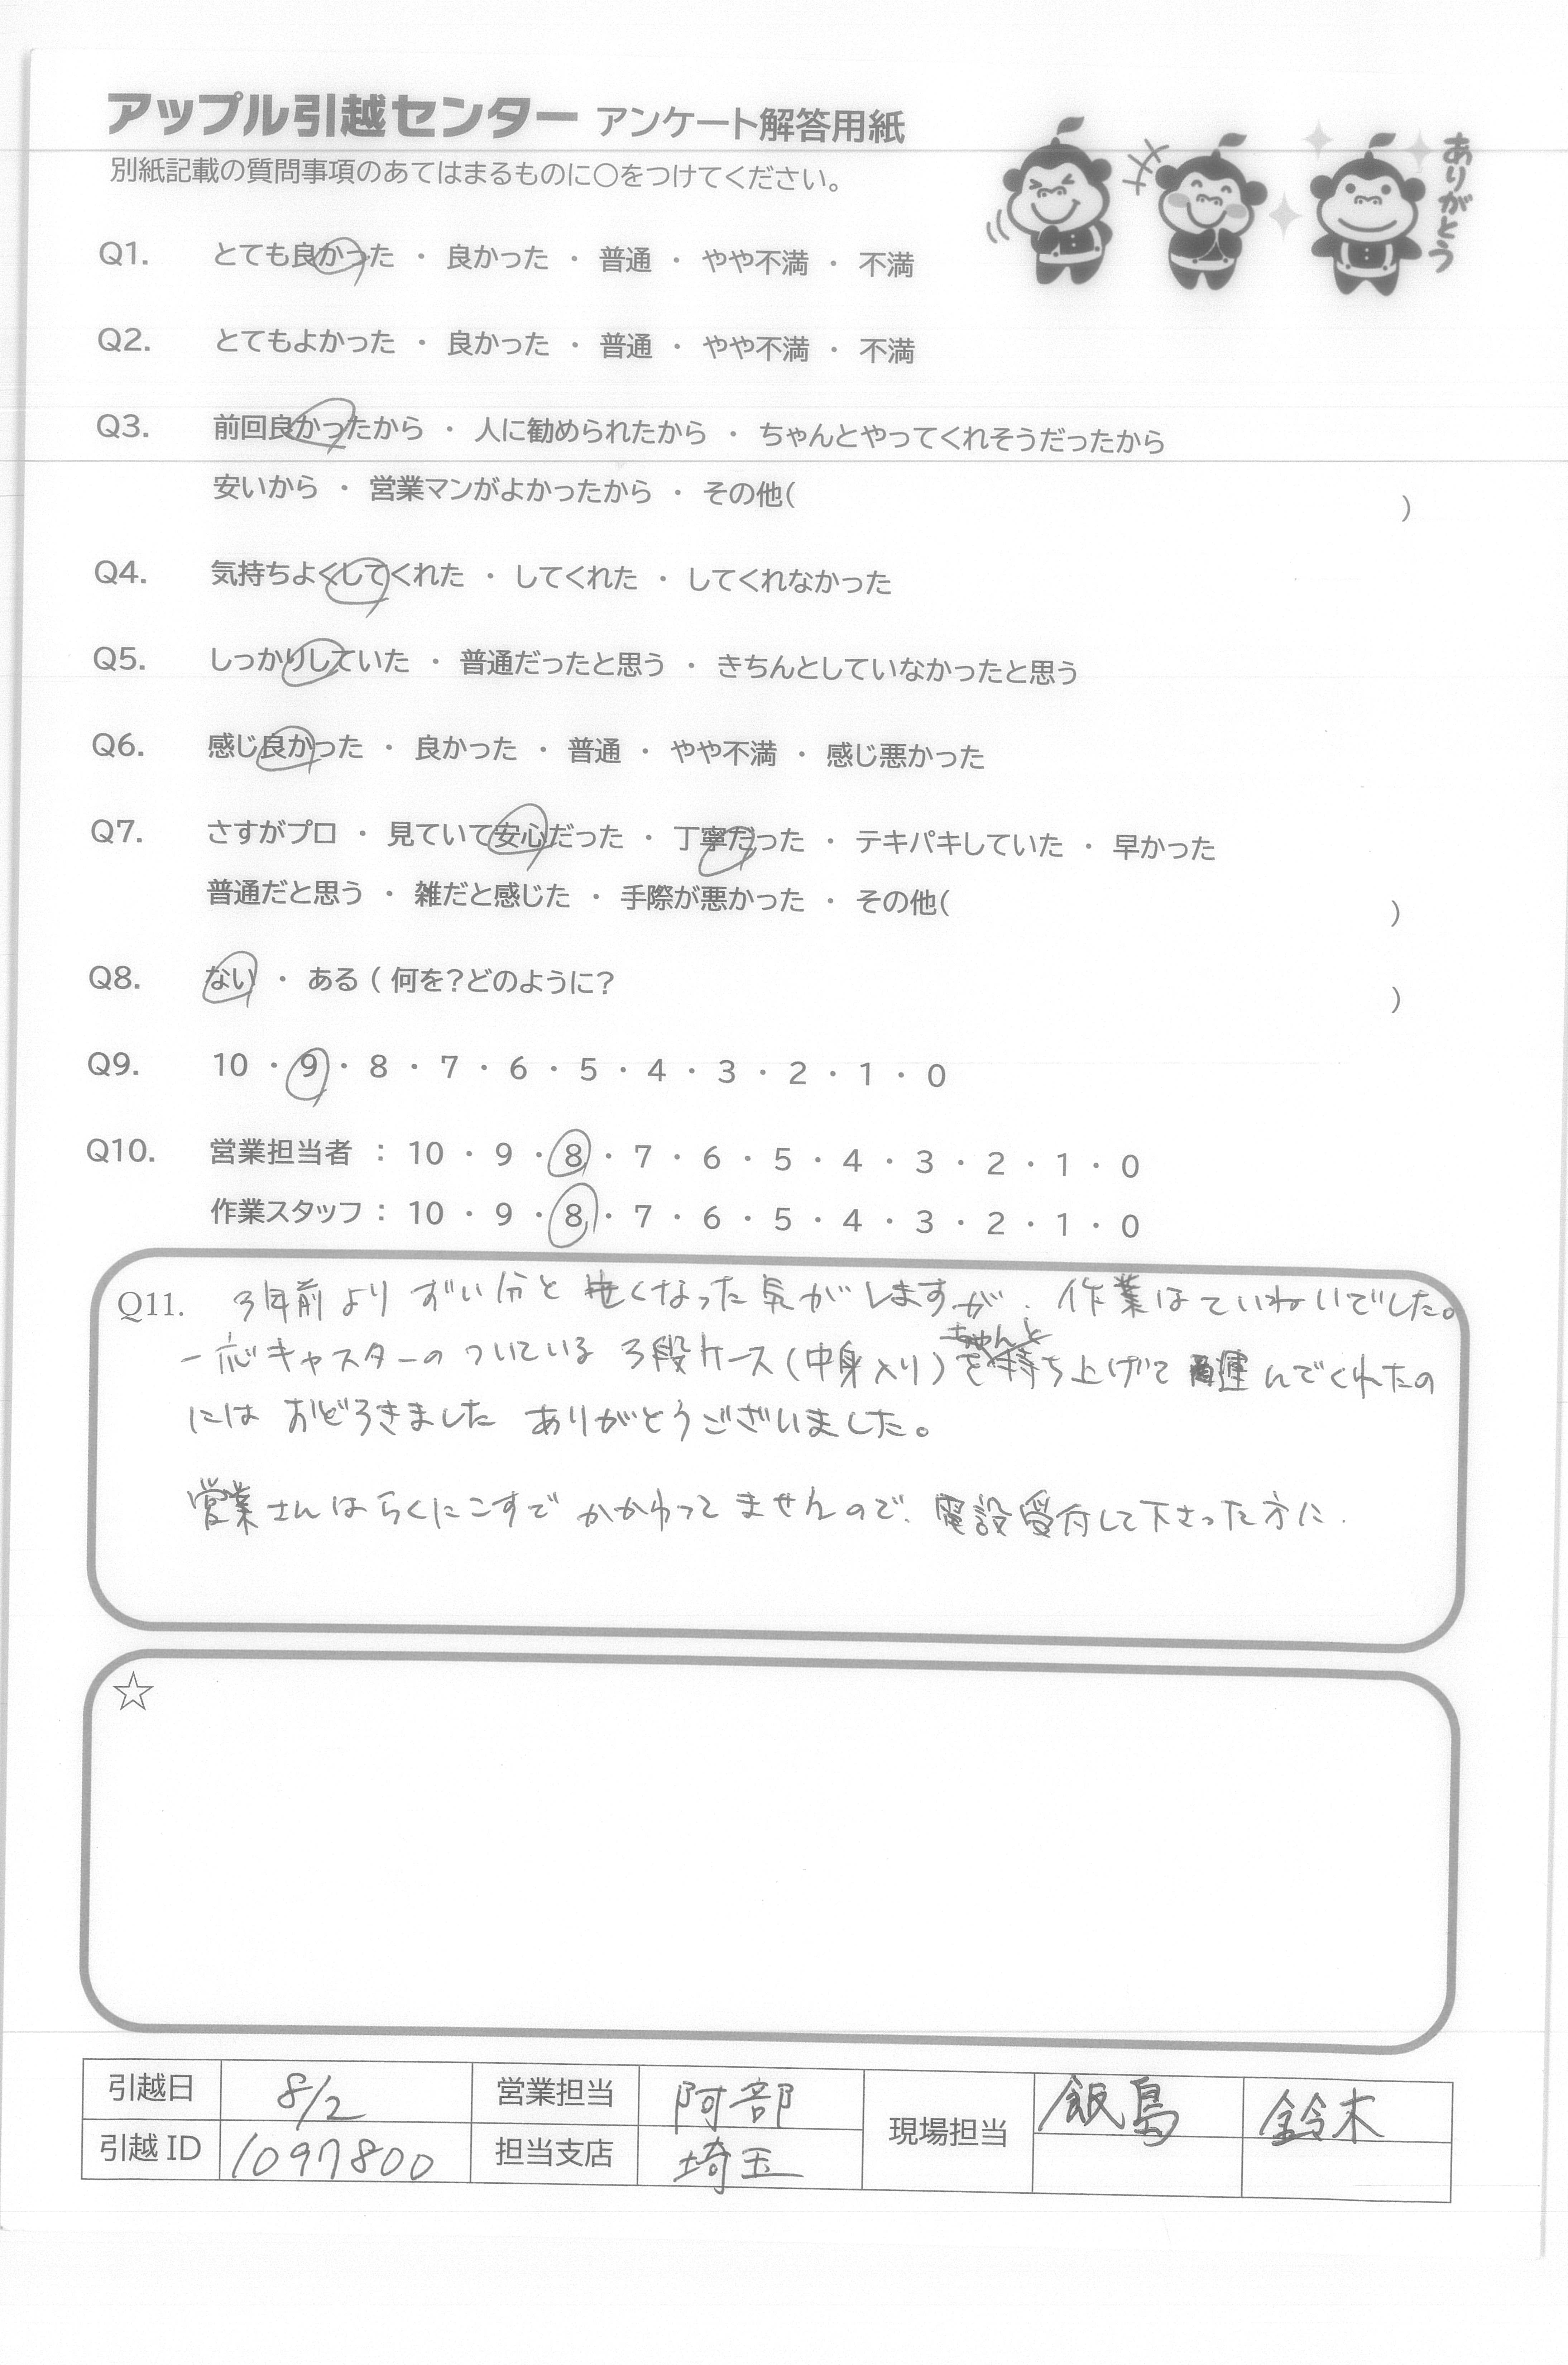 アップル引越センター アンケート解答用紙
別紙記載の質問事項のあてはまるものに○をつけてください。
ありがとう
Q1. とても良かった ・ 良かった ・ 普通 ・ やや不満 ・ 不満
Q2. とてもよかった ・ 良かった ・ 普通 ・ やや不満 ・ 不満
Q3. 前回良かったから ・ 人に勧められたから ・ ちゃんとやってくれそうだったから
安いから ・ 営業マンがよかったから ・ その他( )
Q4. 気持ちよくしてくれた ・ してくれた ・ してくれなかった
Q5. しっかりしていた ・ 普通だったと思う ・ きちんとしていなかったと思う
Q6. 感じ良かった ・ 良かった ・ 普通 ・ やや不満 ・ 感じ悪かった
Q7. さすがプロ ・ 見ていて安心だった ・ 丁寧だった ・ テキパキしていた ・ 早かった
普通だと思う ・ 雑だと感じた ・ 手際が悪かった ・ その他( )
Q8. ない ・ ある ( 何を?どのように? )
Q9. 10 ・ 9 ・ 8 ・ 7 ・ 6 ・ 5 ・ 4 ・ 3 ・ 2 ・ 1 ・ 0
Q10. 営業担当者 : 10 ・ 9 ・ 8 ・ 7 ・ 6 ・ 5 ・ 4 ・ 3 ・ 2 ・ 1 ・ 0
作業スタッフ : 10 ・ 9 ・ 8 ・ 7 ・ 6 ・ 5 ・ 4 ・ 3 ・ 2 ・ 1 ・ 0
Q11. 3年前より ずい分と くなった気がしますが、作業はていねいでした。
一応キャスターのついている 3段ケース(中身入り)を持ち上げて 運んでくれたの
には おどろきました ありがとうございました。
営業さんはらくにこすで かかわってませんので、電設受付して下さった方に.
☆
引越日 8/2 営業担当 阿部 現場担当 飯島 鈴木
引越ID 1097800 担当支店 埼玉